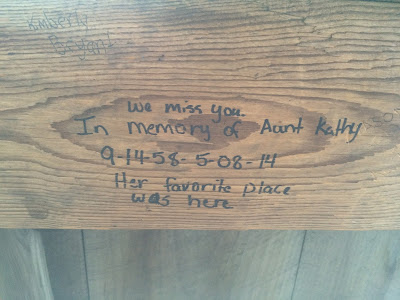 Kimberly
Bryant
We miss you.
In memory of Aunt Kathy
9-14-58- 5-08-14
Her favorite place
was here